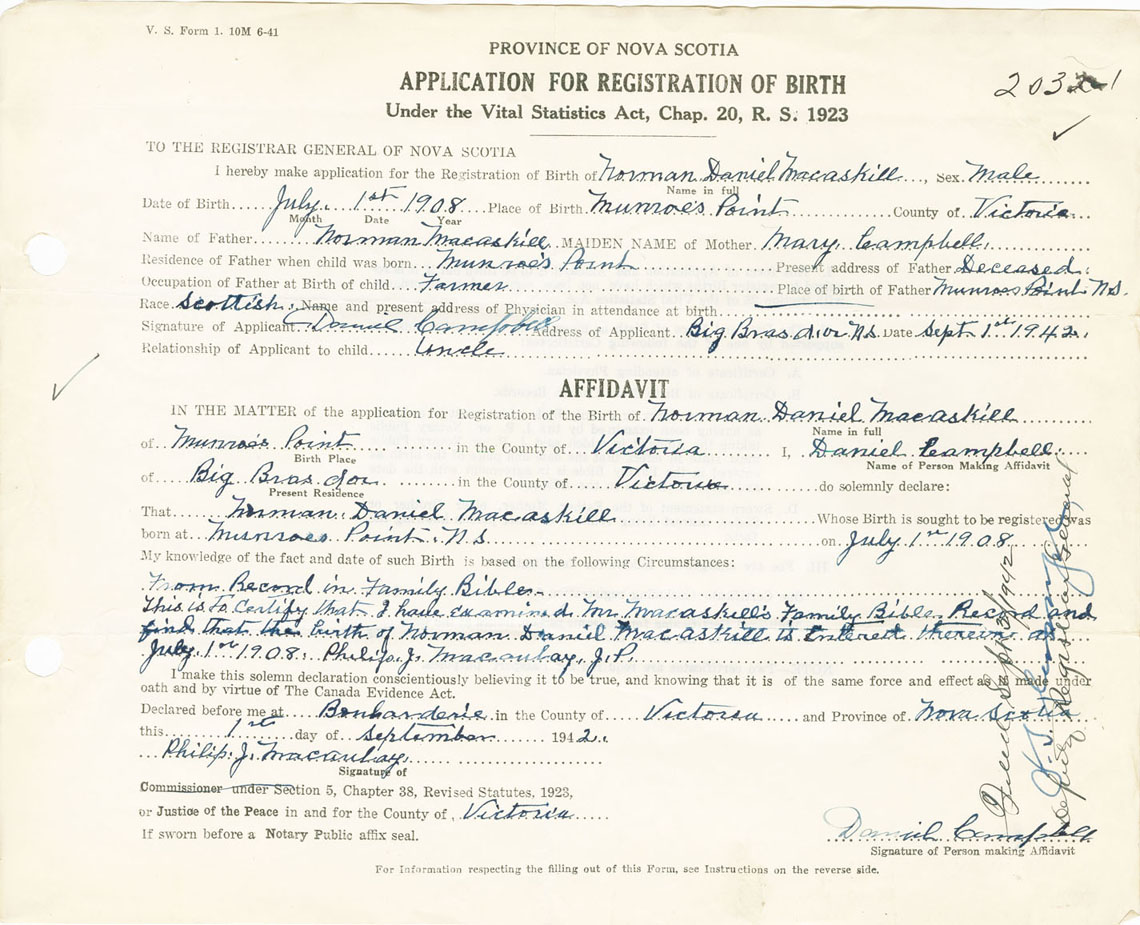 V. S. Form 1. 10M 6-41
PROVINCE OF NOVA SCOTIA
APPLICATION FOR REGISTRATION OF BIRTH
Under the Vital Statistics Act, Chap. 20, R. S. 1923
TO THE REGISTRAR GENERAL OF NOVA SCOTIA
I hereby make application for the Registration of Birth of Norman Daniel Macaskill, Sex Male
Name in full
Date of Birth July 1st 1908 Place of Birth Munroe's Point County of Victoria
Month Date Year
Name of Father Norman Macaskill MAIDEN NAME of Mother Mary Campbell
Residence of Father when child was born Munroe's Point Present address of Father Deceased
Occupation of Father at Birth of child Farmer Place of birth of Father Munroes Point N.S.
Race Scottish Name and present address of Physician in attendance at birth
Signature of Applicant Daniel Campbell Address of Applicant Big Bras d'or N.S. Date Sept 1st 1942
Relationship of Applicant to child Uncle
AFFIDAVIT
IN THE MATTER of the application for Registration of the Birth of Norman Daniel Macaskill
Name in full
of Munroe's Point in the County of Victoria I, Daniel Campbell
Birth Place Name of Person Making Affidavit
of Big Bras dor in the County of Victoria do solemnly declare:
Present Residence
That Norman Daniel Macaskill Whose Birth is sought to be registered was
born at Munroes Point N.S on July 1st 1908
My knowledge of the fact and date of such Birth is based on the following Circumstances:
From Record in Family Bible
This is to certify that I have examined Mr Macaskill's Family Bible Record and
find that the birth of Norman Daniel MacAskill is Entered thereins as
July 1st 1908. Philip J. Macaulay, J.P.
I make this solemn declaration conscientiously believing it to be true, and knowing that it is of the same force and effect as if made under
oath and by virtue of The Canada Evidence Act.
Declared before me at Boularderie in the County of Victoria and Province of Nova Scotia
this 1st day of September 1942.
Philip. J. Macaulay
Signature of
Commissioner under Section 5, Chapter 38, Revised Statutes, 1923,
or Justice of the Peace in and for the County of Victoria
If sworn before a Notary Public affix seal.
Daniel Campbell
Signature of Person making Affidavit
For Information respecting the filling out of this Form, see Instructions on the reverse side.
Filed Sept 1942
Deputy Registrar General